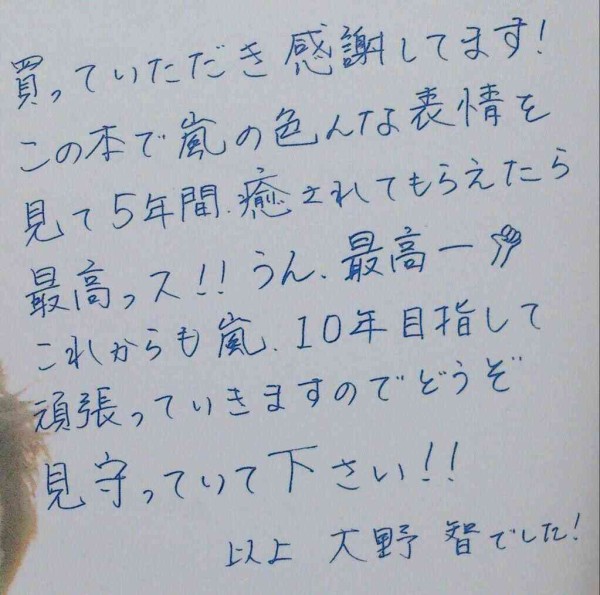 買っていただき感謝してます!
この本で嵐の色んな表情を
見て5年間、癒されてもらえたら
最高っス!!うん、最高ー
これからも嵐、10年目指して
頑張っていきますのでどうぞ
見守っていて下さい!!
以上 大野 智でした!